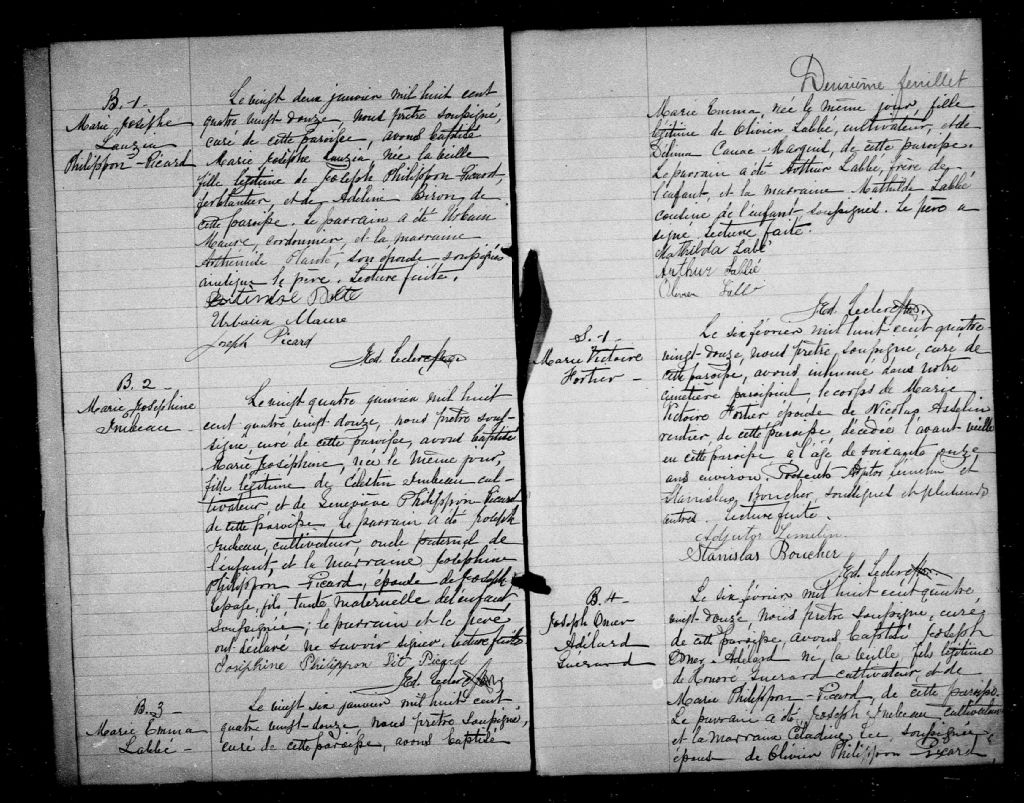 B. 1
Marie Josèphe
Lauzia
Philippon-Picard
Le vingt deux janvier mil huit cent
quatre vingt douze, nous prêtre soussigné,
curé de cette paroisse, avons baptisé
Marie Josèphe Lauzia née la veille
fille légitime de Joseph Philippon-Picard,
ferblantier, et de Adéline Biron, de
cette paroisse. Le parrain a été Urbain
Maure, cordonnier, et la marraine
Arthémise Planté, son épouse soussignés
ainsi que le père. Lecture faite.
Urbain Maure
Joseph Picard
Ed. Leclerc Ptre
B. 2
Marie Joséphine
Imbeau
Le vingt quatre janvier mil huit
cent quatre vingt douze, nous prêtre sous-
signé, curé de cette paroisse, avons baptisé
Marie Joséphine, née le même jour,
fille légitime de Célestin Imbeau cul-
tivateur et de Geneviève Philippon Picard
de cette paroisse. Le parrain a été Joseph
Imbeau, cultivateur, oncle paternel de
l'enfant, et la marraine Joséphine
Philippon-Picard, épouse de Joseph
Lepage, fils, tante maternelle de l'enfant
soussignée; le parrain et le père
ont déclaré ne savoir signer. Lecture faite
Josiphine Philippon Dit Picard
Ed. Leclerc Ptre
B. 3
Marie Emma
Labbé
Le vingt six janvier mil huit cent
quatre vingt douze, nous prêtre soussigné,
curé de cette paroisse, avons baptisé
Deuxième feuillet
Marie Emma née le même jour, fille
légitime de Olivier Labbé, cultivateur, et de
Zélima Canac-Marquis, de cette paroisse.
Le parrain a été Arthur Labbé, frère de
l'enfant, et la marraine Mathilde Labbé
cousine de l'enfant soussignés. Le père a
signé. Lecture faite.
Mathilda Labé
Arthur Labbé
Olivier Labbé
Ed. Leclerc Ptre.
S. 1
Marie Victoire
Fortier
Le six février mil huit cent quatre
vingt-douze, nous prêtre, soussigné, curé de
cette paroisse, avons inhumé dans notre
cimetière paroissial, le corps de Marie
Victoire Fortier épouse de Nicolas Asselin
rentier, de cette paroisse décédée l'avant-veille
en cette paroisse à l'âge de soixante onze
ans environ. Présents Adjutor Lemelin et
Stanislas Boucher, soussignés et plusieurs
autres. Lecture faite.
Adjutor Lemelin
Stanislas Boucher
Ed. Leclerc Ptre
B. 4
Joseph Omer
Adélard
Guérard
Le six février mil huit cent quatre
vingt-douze, nous prêtre soussigné, curé
de cette paroisse, avons baptisé Joseph
Omer-Adélard né, la veille, fils légitime
de Honoré Guérard cultivateur, et de
Marie Philippon-Picard de cette paroisse.
Le parrain a été Joseph Imbeau, cultivateur
et la marraine soussignée,
épouse de Olivier Philippon Picard,